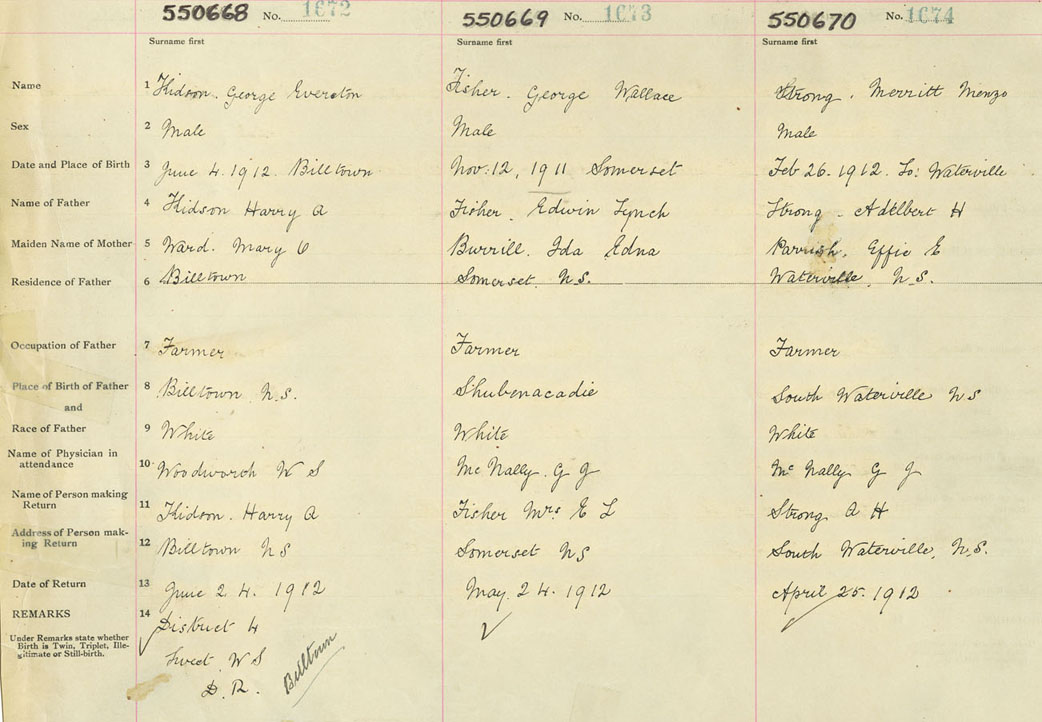 550668 No. 1672 550669 No. 1673 550670 No. 1674
Surname first Surname first Surname first
Name 1 Hidson. George Everston Fisher. George Wallace Strong. Merritt Menzo
Sex 2 Male Male Male
Date and Place of Birth 3 June 4. 1912. Billtown Nov. 12, 1911 Somerset Feb 26. 1912. So: Waterville
Name of Father 4 Hidson Harry A Fisher. Edwin Lynch Strong. Adelbert H
Maiden Name of Mother 5 Ward. Mary O Burrill. Ida Edna Parrish, Effie E
Residence of Father 6 Billtown Somerset. N.S. Waterville, N.S.
Occupation of Father 7 Farmer Farmer Farmer
Place of Birth of Father 8 Billtown N.S. Shubenacadie South Waterville NS
and
Race of Father 9 White White White
Name of Physician in
attendance 10 Woodworth W S McNally. G J Mc Nally G J
Name of Person making
Return 11 Hidson. Harry A Fisher Mrs E L Strong A H
Address of Person mak-
ing Return 12 Billtown NS Somerset NS South Waterville, N.S.
Date of Return 13 June 24. 1912 May 24. 1912 April 25. 1912
REMARKS 14 District 4
Under Remarks state whether
Birth is Twin, Triplet, Ille-
gitimate or Still-birth.
Sweet W S
D. R. Billtown